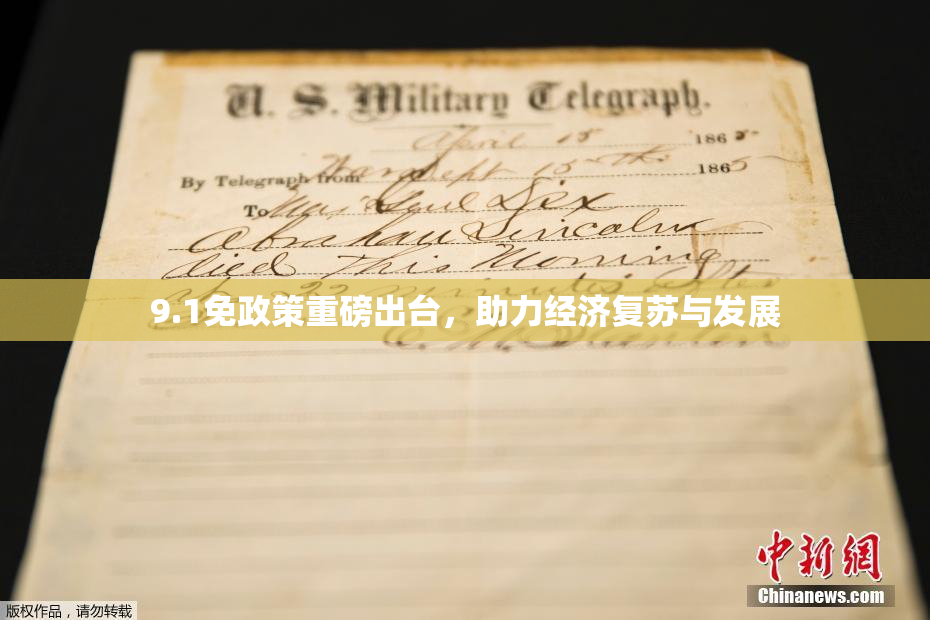 U. S. Military Telegraph.
April 15 1865
By Telegraph from War Dept 15th 1865
To Maj Genl Dix
Abraham Lincoln
died This Morning
22 minutes after
9.1免政策重磅出台，助力经济复苏与发展
E. M. Stanton
中新网
Chinanews.com
版权作品，请勿转载